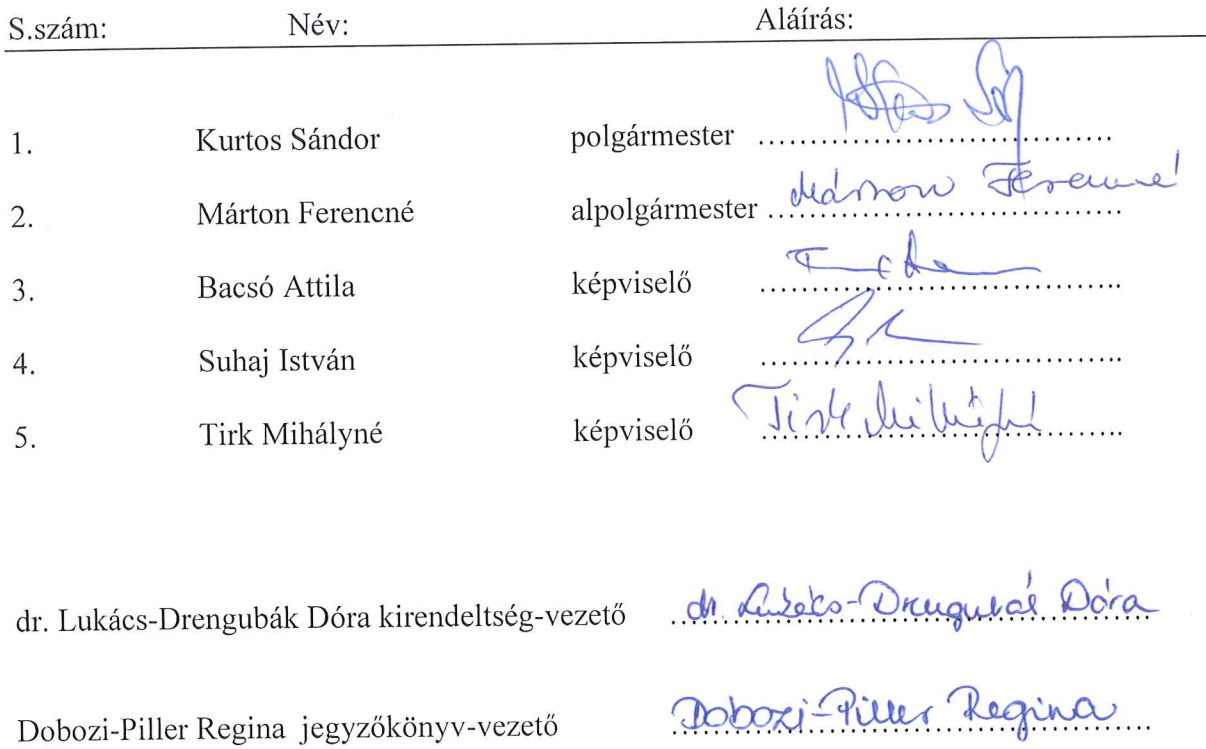 S.szám: Név: Aláírás:
1. Kurtos Sándor polgármester ...............................................
2. Márton Ferencné alpolgármester ............................................... Márton Ferencné
3. Bacsó Attila képviselő ...............................................
4. Suhaj István képviselő ...............................................
5. Tirk Mihályné képviselő ............................................... Tirk Mihályné
dr. Lukács-Drengubák Dóra kirendeltség-vezető ............................................... dr. Lukács-Drengubák Dóra
Dobozi-Piller Regina jegyzőkönyv-vezető ............................................... Dobozi-Piller Regina